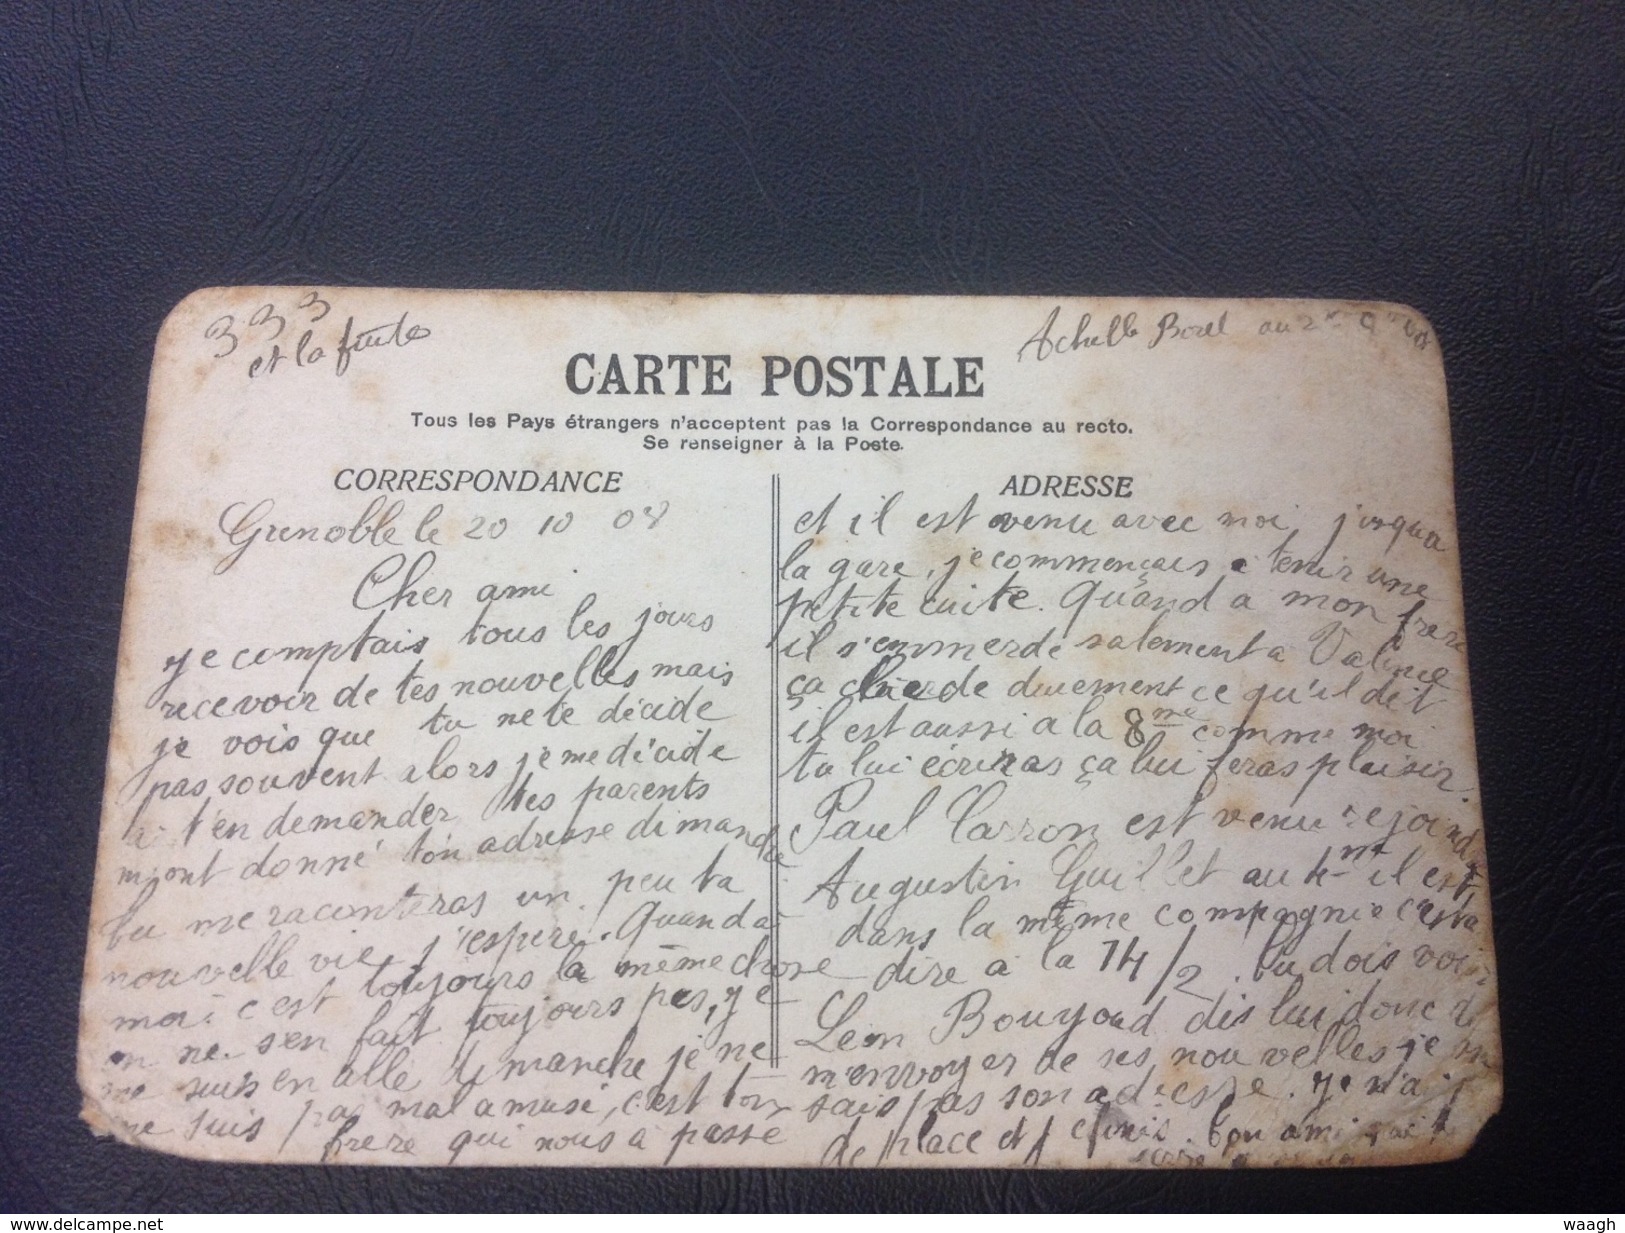 333
et la fuite
Achille Borel au 2
CARTE POSTALE
Tous les Pays étrangers n'acceptent pas la Correspondance au recto.
Se renseigner à la Poste.
CORRESPONDANCE
Grenoble le 20 10 08
Cher ami
je comptais tous les jours
recevoir de tes nouvelles mais
je vois que tu ne te décide
pas souvent alors je me décide
a t'en demander tes parents
m'ont donné ton adresse dimanche
tu me raconteras un peu ta
nouvelle vie j'espère. Quand a
moi c'est toujours la même chose
on ne s'en fait toujours pas, je
me suis en allé dimanche je ne
me suis pas mal amusé, c'est ton
frere qui nous a passé
ADRESSE
et il est venu avec moi jusqua
la gare, je commençais a tenir une
petite cuite. Quand a mon frere
il s'emmerde salement a Valence
ça durement ce qu'il dit
il est aussi a la 8me comme moi
tu lui écriras ça lui feras plaisir.
Paul Carron est venu rejoindre
Augustin Guillet au il est
dans la même compagnie c'est a
dire a la 14/2. Tu dois voir
Leon Bouyoud dis lui donc de
m'envoyer de ses nouvelles je ne
sais pas son adresse. Je n'ai
de place et je finis. Ton ami
delcampe.net
waagh